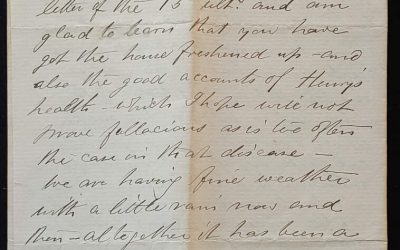 letter of the 15 ulto. and am
glad to learn that you have
got the house freshened up – and
also the good accounts of Henry's
health – which I hope will not
prove fallacious as is too often
the case in that disease –
We are having fine weather
with a little rain now and
then – altogether it has been a